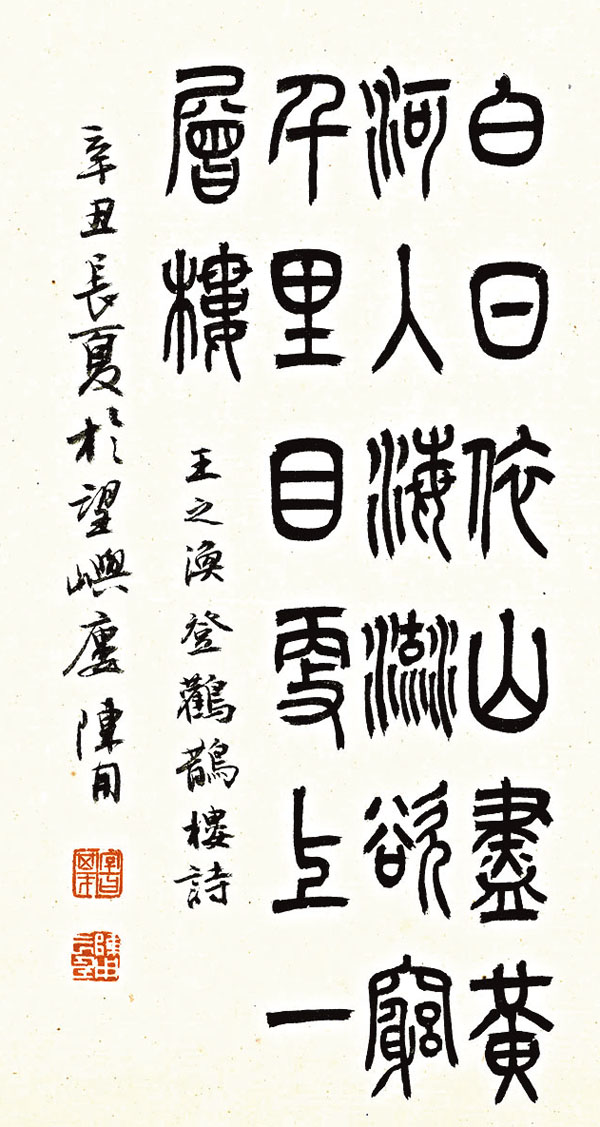 白日依山盡黃
河入海流欲窮
千里目更上一
層樓
王之渙登鸛鵲樓詩
辛丑長夏於望嶼廔陳